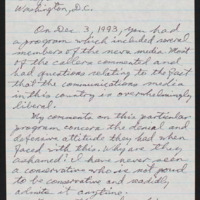 Washington, D.C.
On Dec 3, 1993, you had
a program which included several
members of the news media. Most
of the callers commented and
had questions relating to the fact
that the communications media
in this country is overwhelmingly
liberal.
My comments on this particular
program concern the denial and
defensive attitude they had when
faced with this. Why are they
ashamed? I have never seen
a conservative who is not proud
to be conservative and readily
admits it anytime.